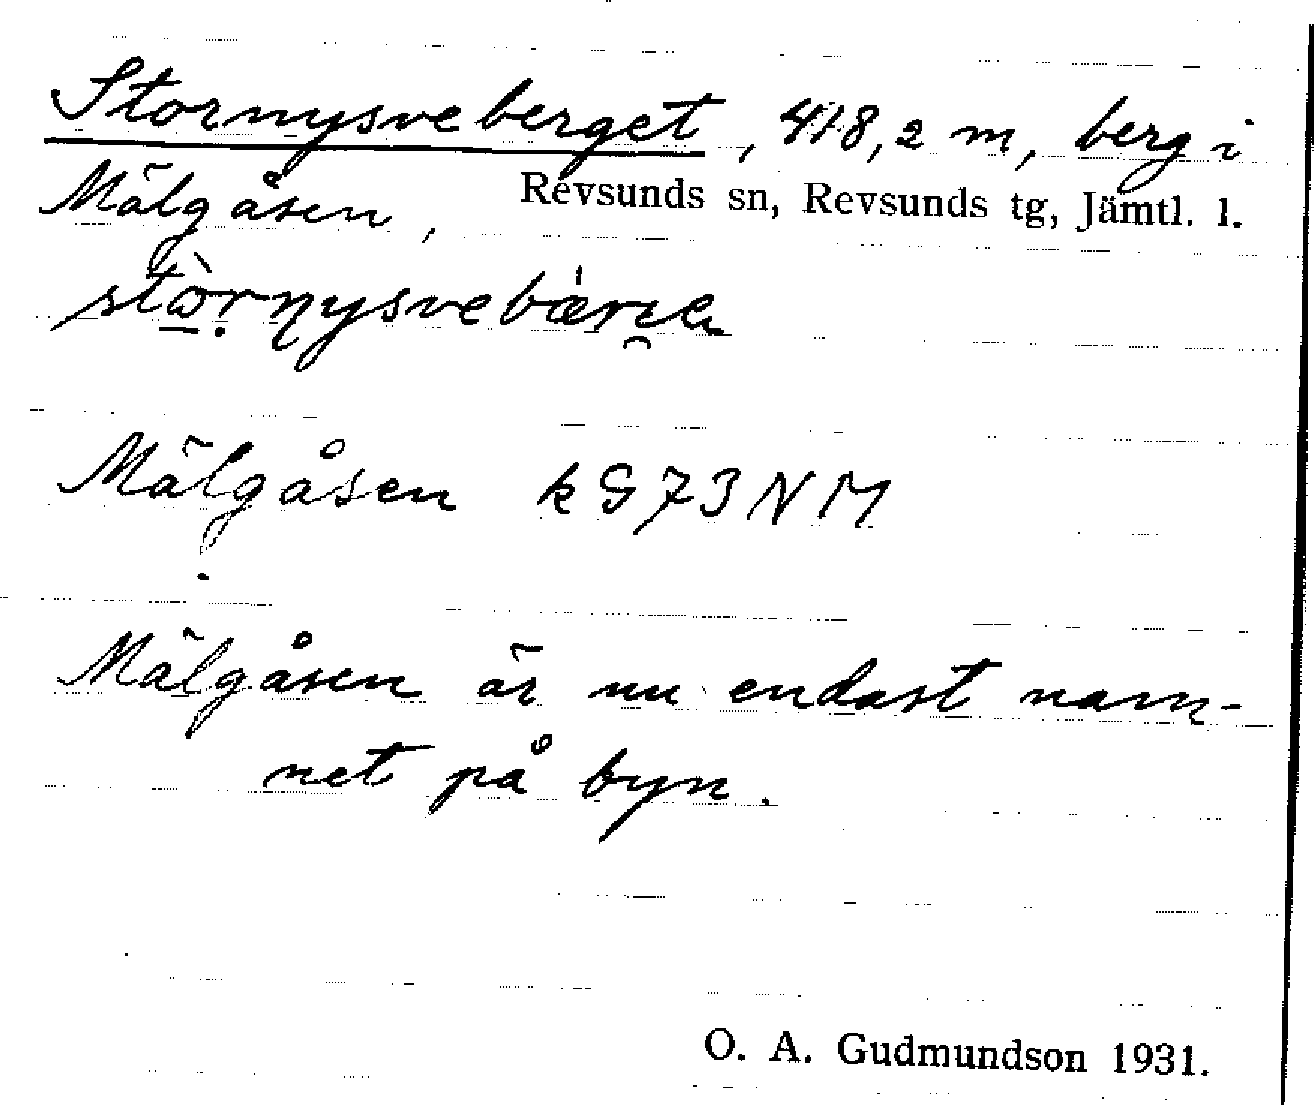 Stornysveberget, 418,2 m, berg i
Mälgåsen, Revsunds sn, Revsunds tg, Jämtl. l.
Mälgåsen k G 73 N M
Mälgåsen är nu endast nam-
net på byn.
O. A. Gudmundson 1931.